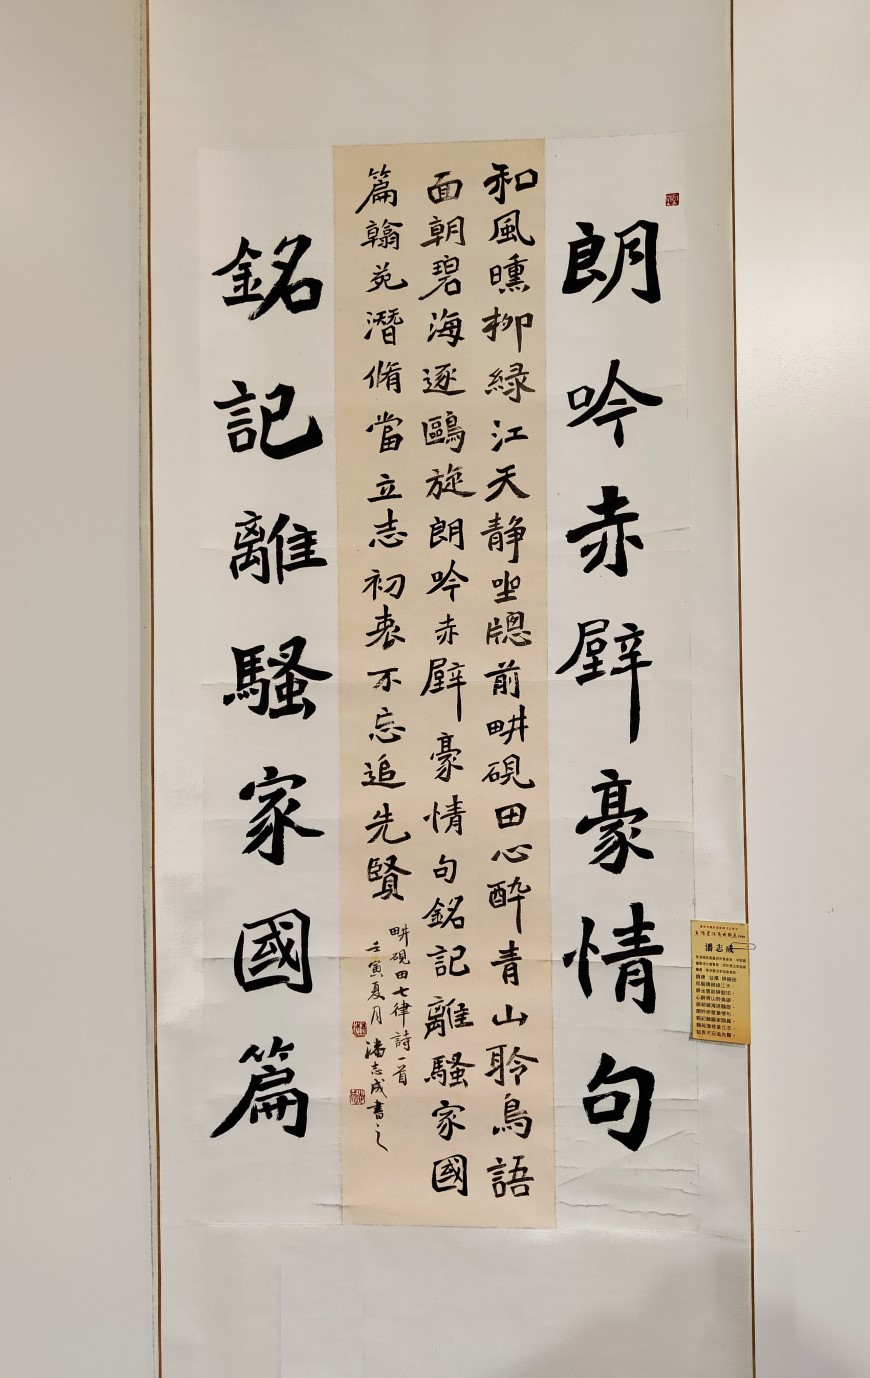 朗吟赤壁豪情句
和風曛柳緑江天静坐牕前畊硯田心醉青山聆鳥語
面朝碧海逐鷗旋朗吟赤壁豪情句銘記離騷家國
篇翰苑潛脩當立志初衷不忘追先賢
畊硯田七律詩一首
壬寅夏月潘志成書之
銘記離騷家國篇
潘志成